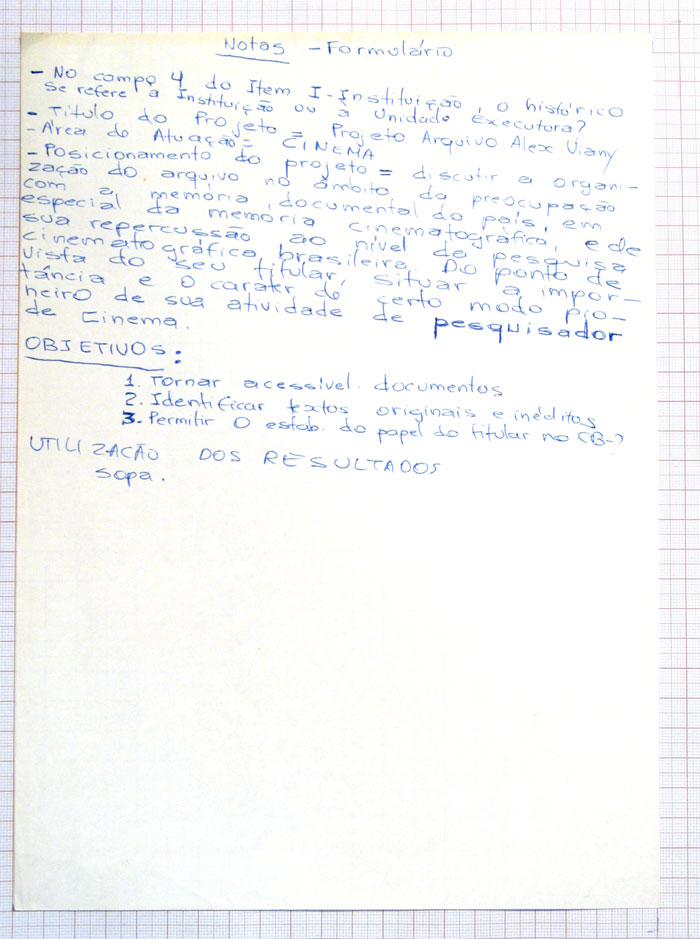 Notas - Formulário
- No campo 4 do Item I-Instituição, o histórico
se refere à Instituição ou à Unidade Executora?
- Título do Projeto = Projeto Arquivo Alex Viany
- Área de Atuação = CINEMA
- Posicionamento do projeto = discutir a organi-
zação do arquivo no âmbito da preocupação
com a memória documental do país, em
especial da memória cinematográfica, e de
sua repercussão ao nível da pesquisa
cinematográfica brasileira. Do ponto de
vista do seu titular, situar a impor-
tância e o caráter de certo modo pio-
neiro de sua atividade de pesquisador
de Cinema.
OBJETIVOS:
1. Tornar acessível documentos
2. Identificar textos originais e inéditos
3. Permitir o estab. do papel do titular no CB-?
UTILIZACÃO DOS RESULTADOS
sopa.